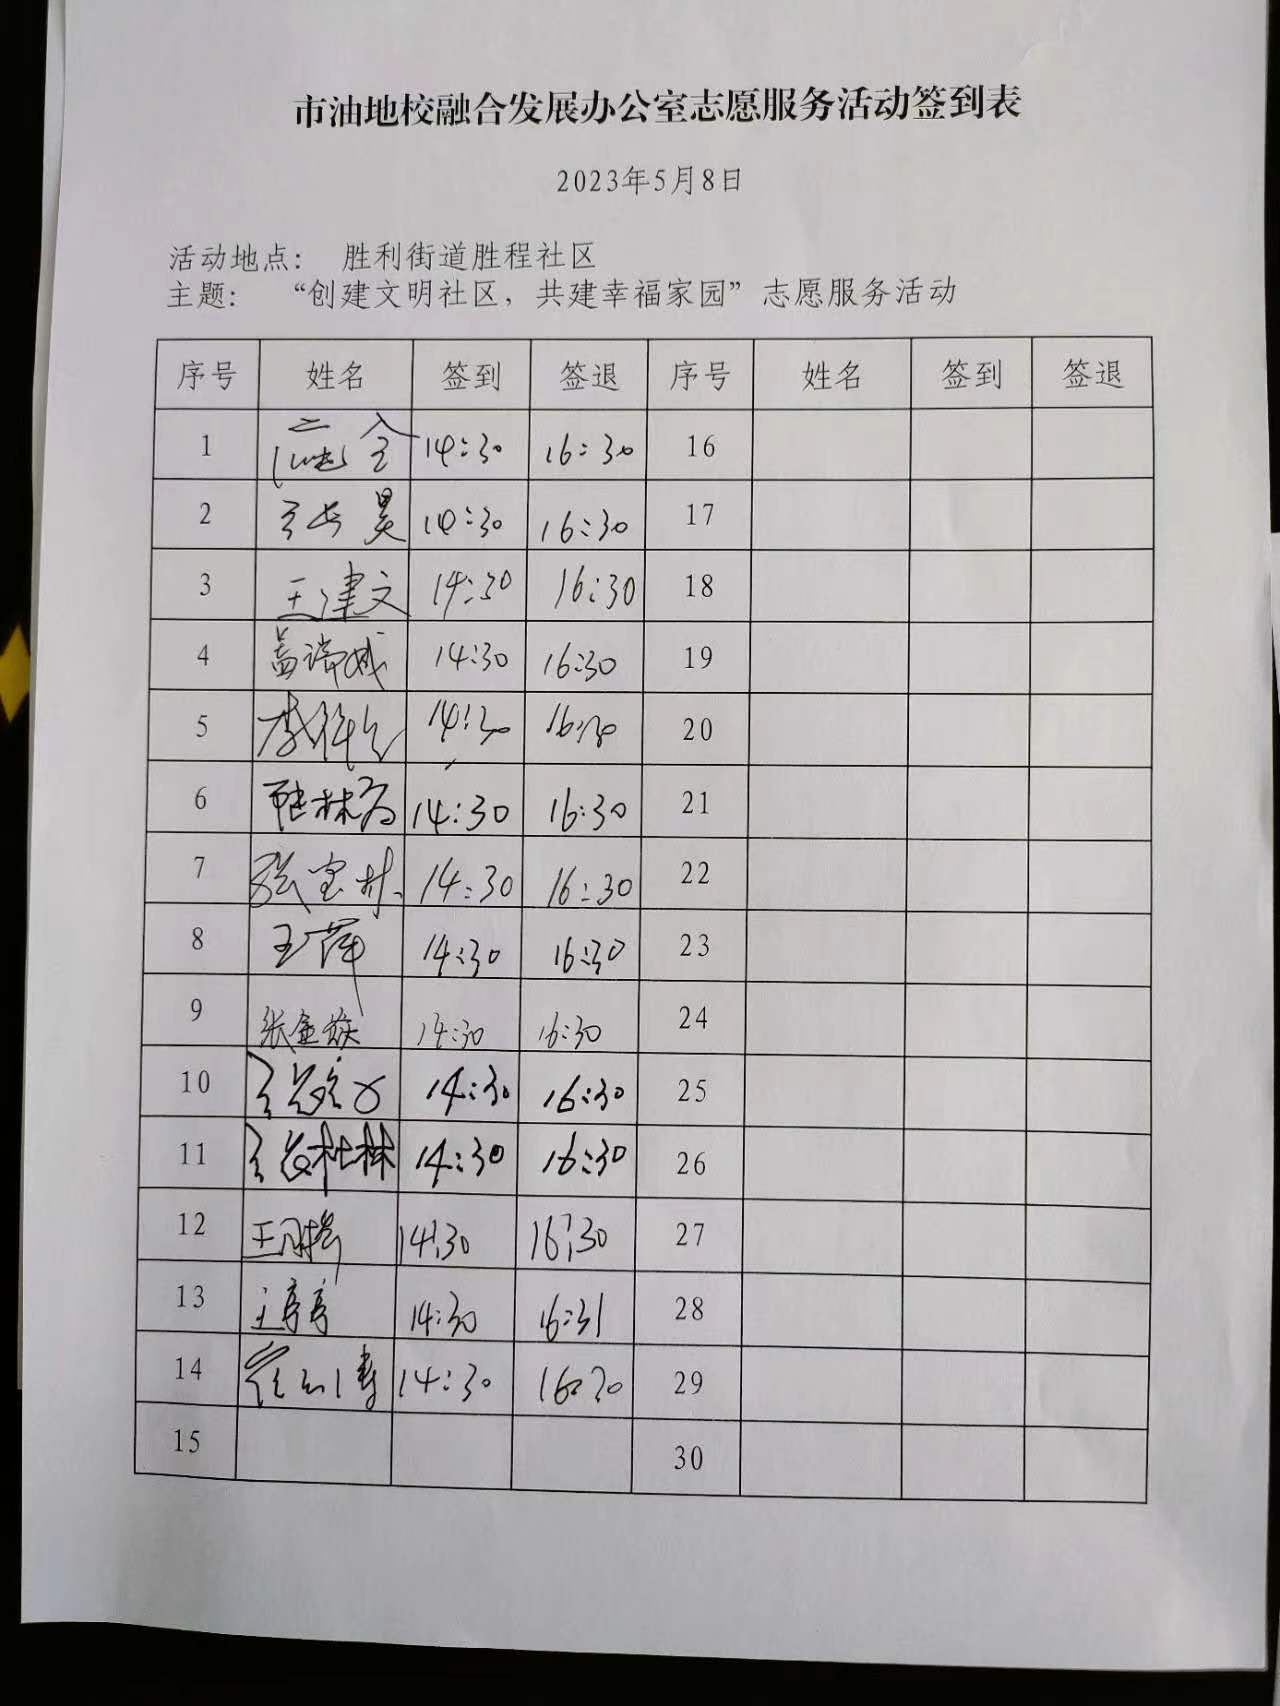 市油地校融合发展办公室志愿服务活动签到表
2023年5月8日
活动地点： 胜利街道胜程社区
主题： “创建文明社区，共建幸福家园”志愿服务活动
序号 姓名 签到 签退 序号 姓名 签到 签退
1 14:30 16:30 16
2 14:30 16:30 17
3 王建文 14:30 16:30 18
4 14:30 16:30 19
5 14:30 16:30 20
6 14:30 16:30 21
7 张宝林 14:30 16:30 22
8 王萍 14:30 16:30 23
9 14:30 16:30 24
10 14:30 16:30 25
11 14:30 16:30 26
12 14:30 16:30 27
13 14:30 16:31 28
14 14:30 16:30 29
15 30